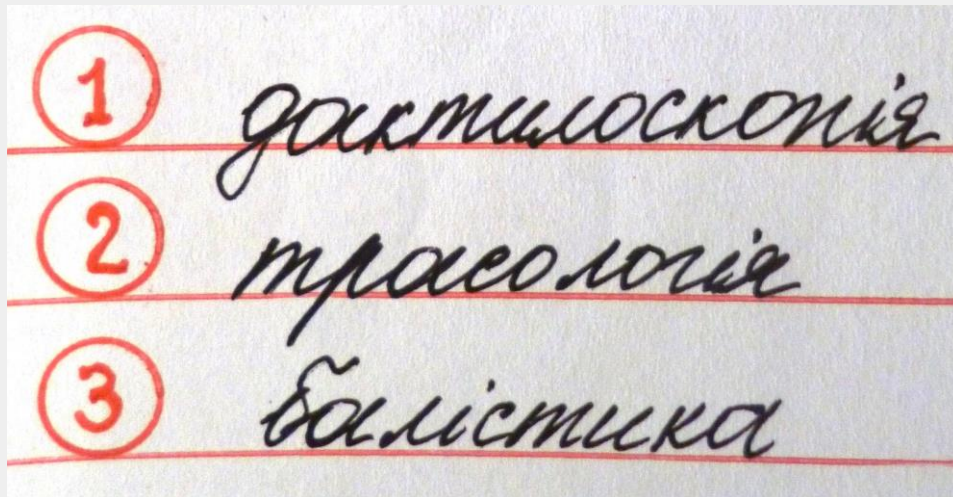 1 дактилоскопія
2 трасологія
3 балістика